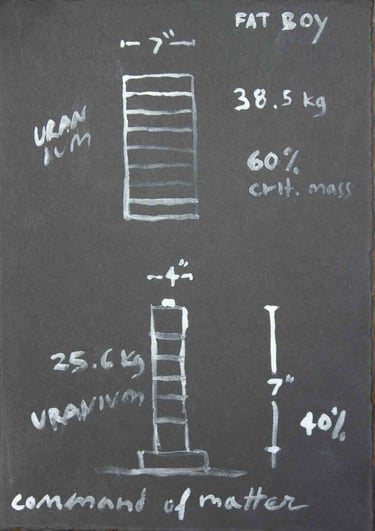 FAT BOY
7"
38.5 kg
URAN
IUM
60%
crit. mass
4"
25.6 kg
URANIUM
7"
40%
command of matter